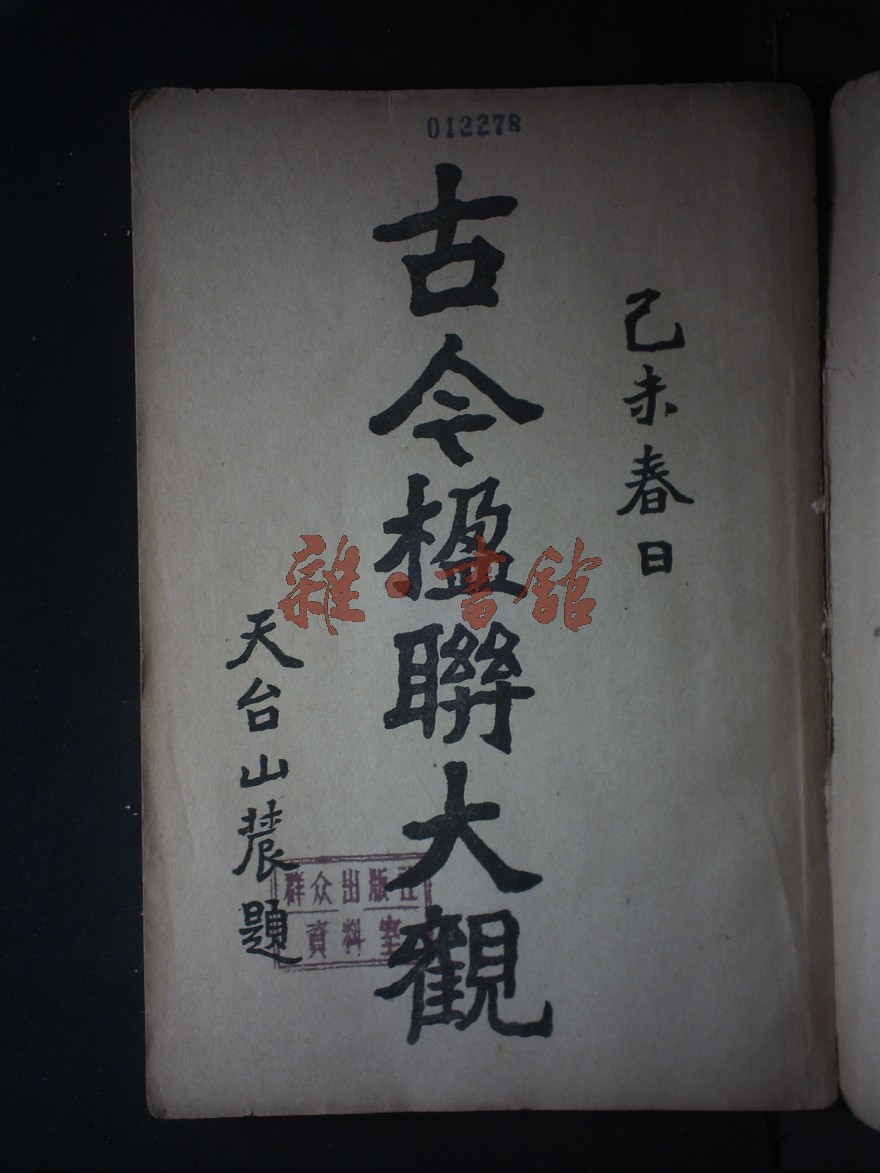 012278
己未春日
古今楹聯大觀
天台山農題
群众出版社
資料室
雜·書館